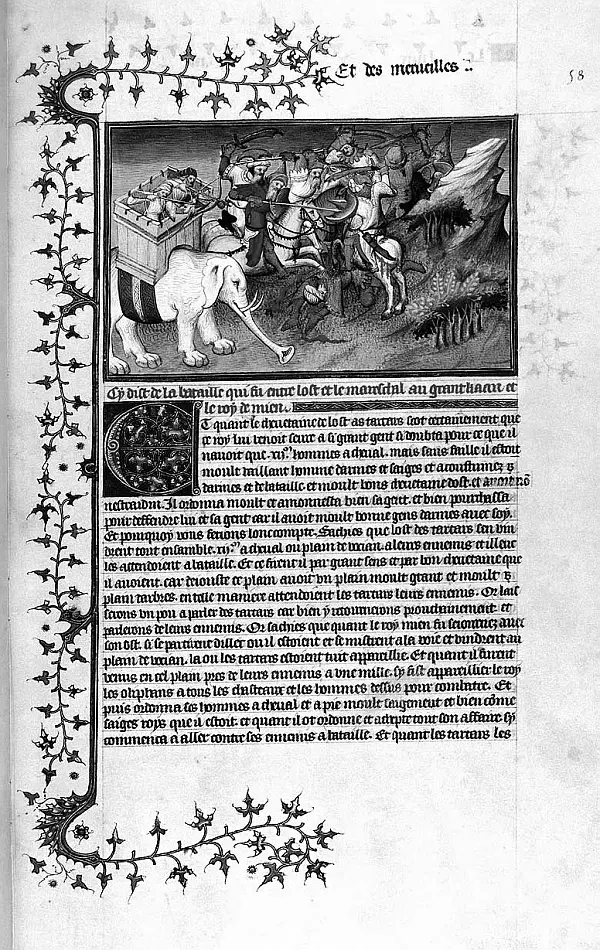 Et des merueilles :.
58
Cy dist de la bataille qui fu entre lost et le mareschal au grant kaan et
le roy de mien.
Et quant le cheuetaine de lost as tartars scot certainement que
ce roy lui venoit seure a si grant gent si doubta pour ce que il
nauoit que .xij.m hommes a cheual. mais sans faille il estoit
moult vaillant homme darmes et saiges et acoustumez
darmes et de bataille et moult bons cheuetaine dost. et
nestraidin. Il ordonna moult et amonnesta bien sa gent. et bien pourchassa
pour deffendre lui et sa gent car il auoit moult bonne gens darmes auec soy.
Et pourquoy ferions lonc compte. Sachies que lost des tartars sen vin
drent tout ensemble .xij.m a cheual ou plain de vocian. a leurs ennemis et illeuc
les attendoient a la bataille. Et ce firent il par grant sens et par bon cheuetaine que
il auoient. car dejouste ce plain auoit vn plain moult grant et moult
plain darbres. en telle maniere attendoient les tartars leurs ennemis. Or lais
serons vn pou a parler des tartars car bien y retournerons prouchainement et
parlerons de leurs ennemis. Or sachies que quant le roy mien fu seiournez auec
son ost. si se partirent dillec ou il estoient et se mistrent a la voie et vindrent au
plain de vocian. la ou les tartars estoient tuit appareillie. Et quant il furent
venus en cel plain pres de leurs ennemis a vne mille. sy fist appareillier le roy
les oliphans a tous les chasteaux et les hommes dessus pour combatre. Et
puis ordonna ses hommes a cheual et a pie moult saigement et bien come
saiges roys que il estoit. et quant il ot ordonne et adrecie tout son affaire sy
commenca a aller contre ses ennemis a bataille. Et quant les tartars les